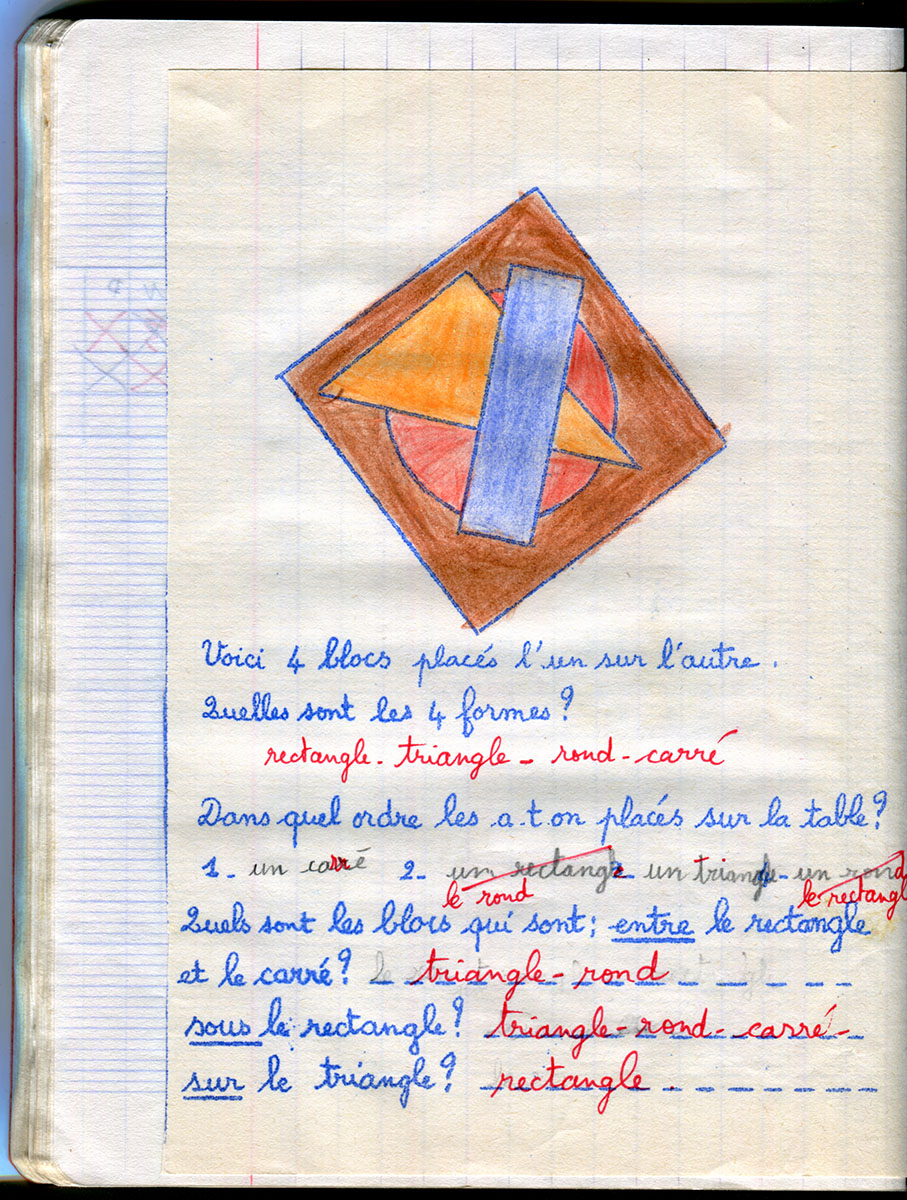 Voici 4 blocs placés l'un sur l'autre.
Quelles sont les 4 formes?
rectangle - triangle - rond - carré
Dans quel ordre les a-t-on placés sur la table?
1- un carré 2- un rectangle - un triangle - un rond
le rond le rectangl
Quels sont les blocs qui sont: entre le rectangle
et le carré? triangle - rond
sous le rectangle? triangle - rond - carré -
sur le triangle? rectangle.